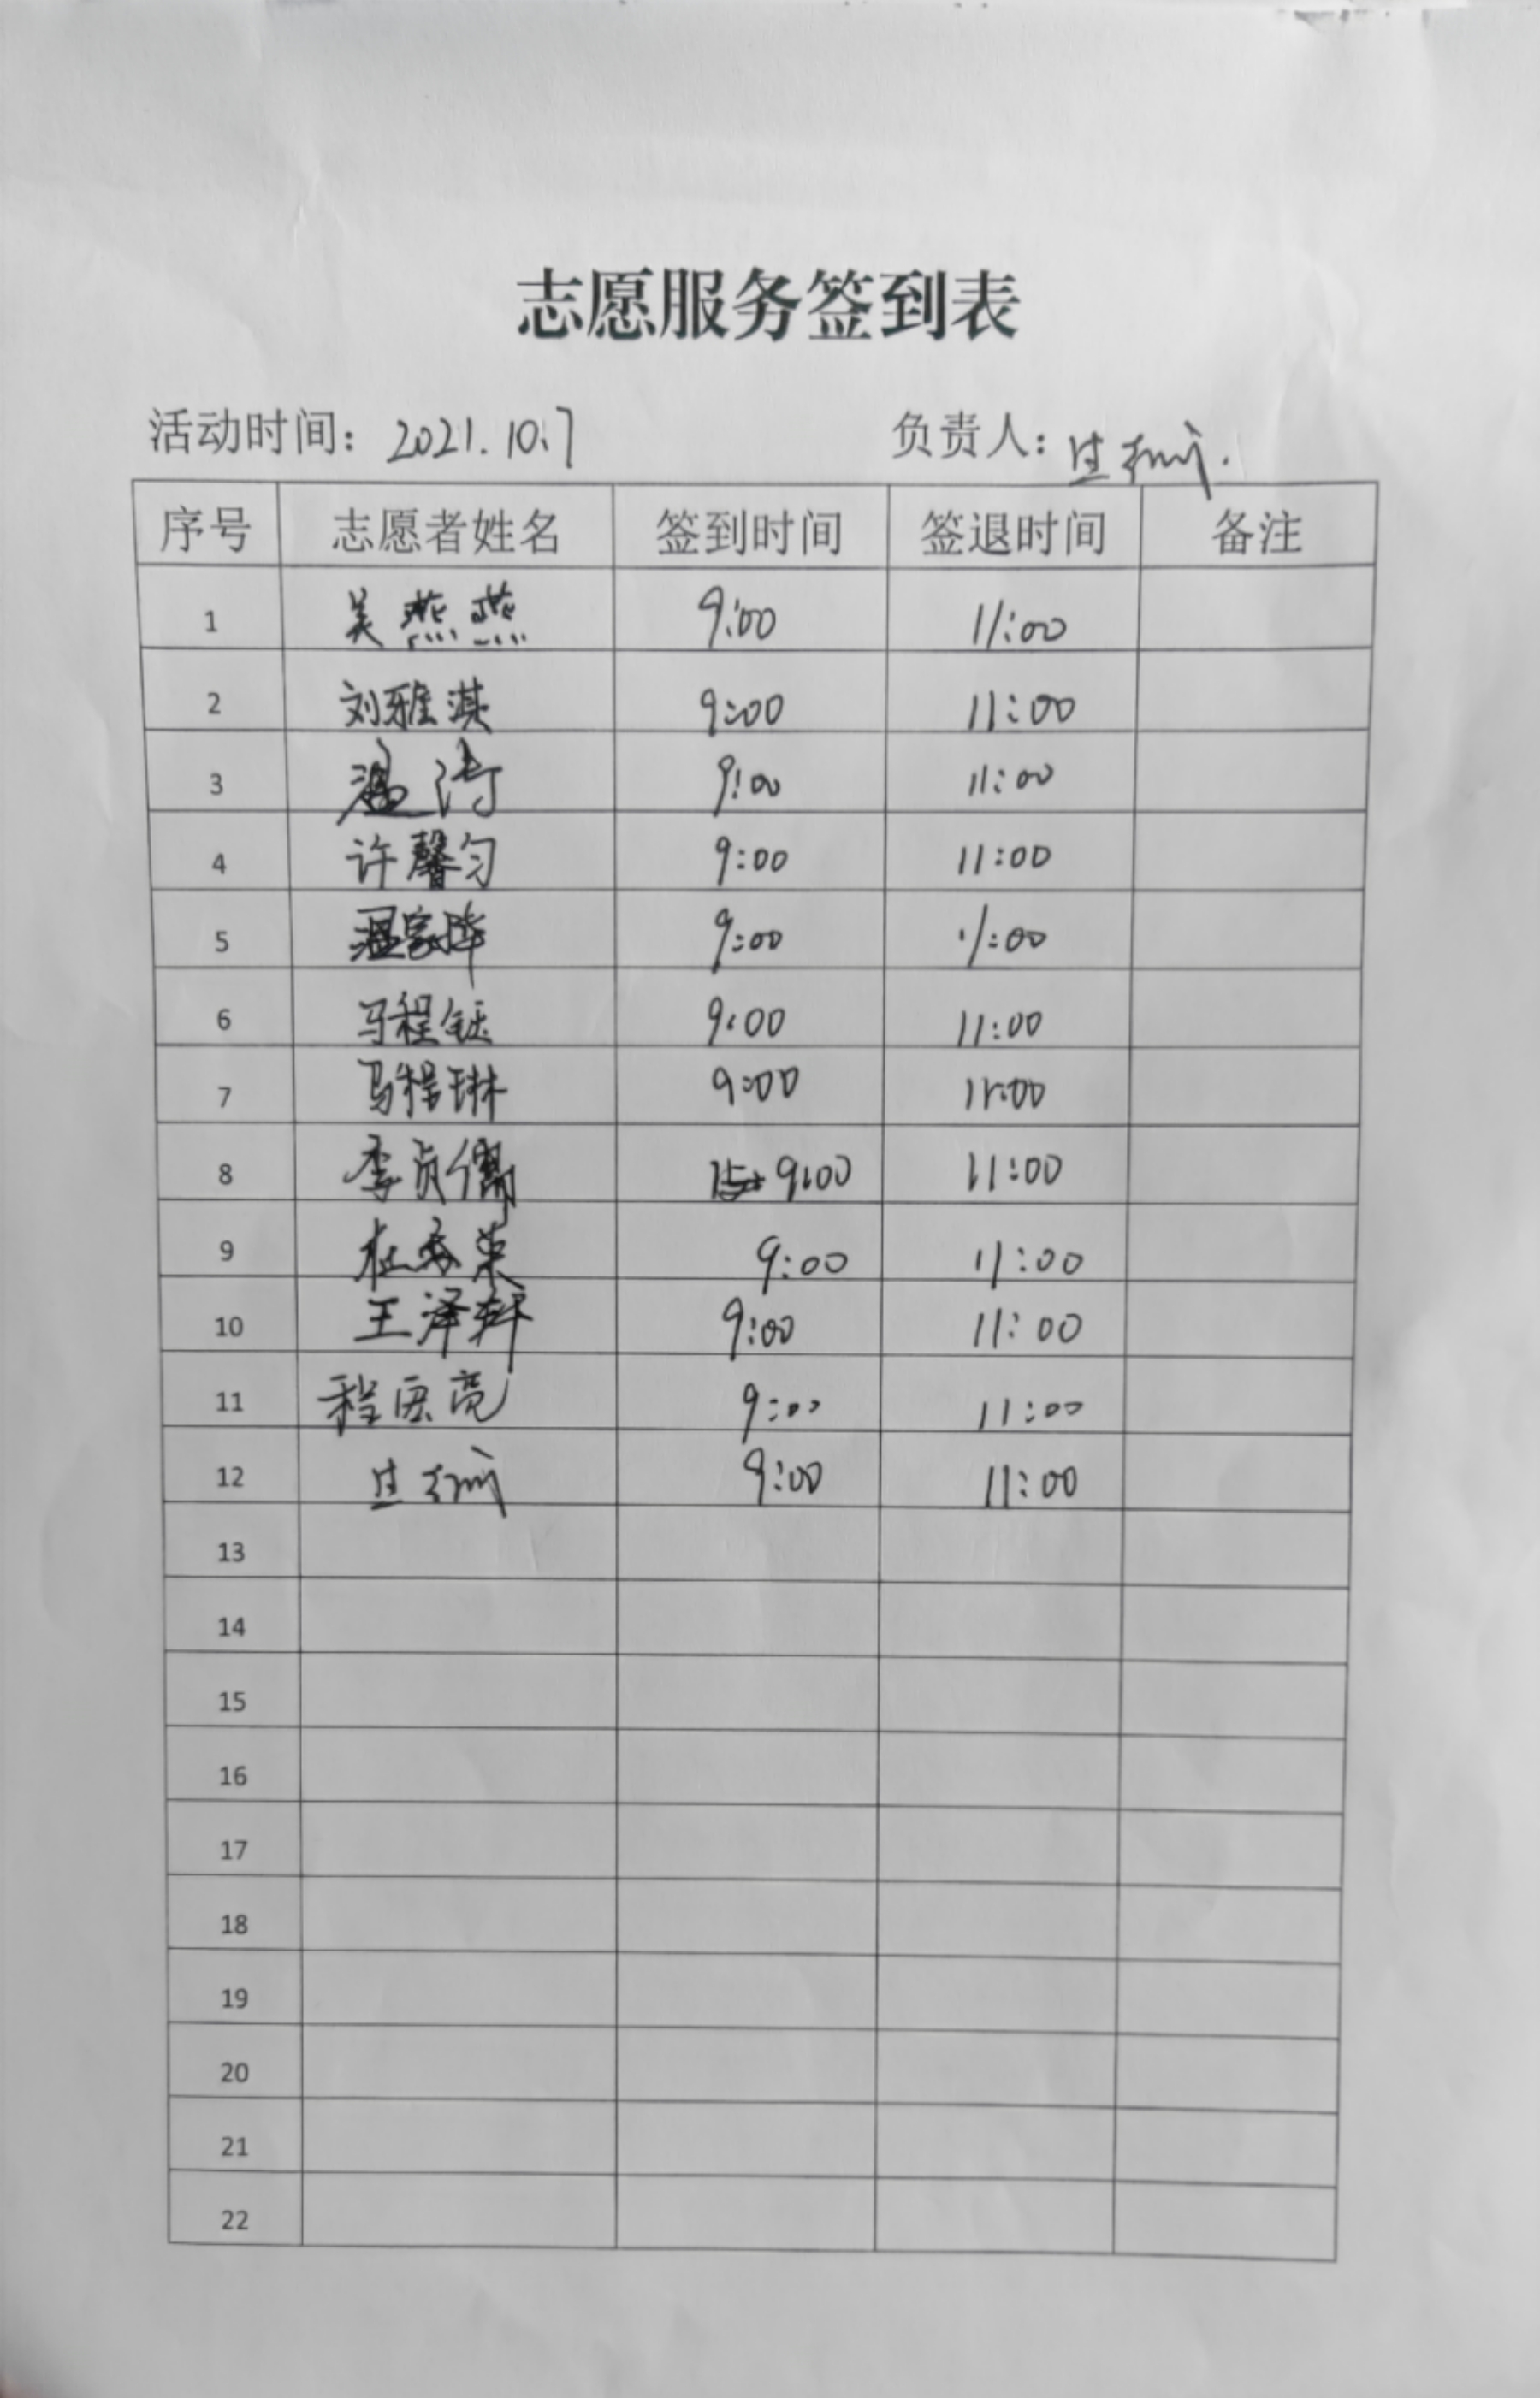 志愿服务签到表
活动时间：2021.10.7 负责人：
序号 志愿者姓名 签到时间 签退时间 备注
1 燕燕 9:00 11:00
2 刘雅淇 9:00 11:00
3 温涛 9:00 11:00
4 许馨匀 9:00 11:00
5 温家晔 9:00 11:00
6 马程钰 9:00 11:00
7 马程琳 9:00 11:00
8 李贞儒 9:00 11:00
9 杜秀荣 9:00 11:00
10 王泽轩 9:00 11:00
11 程 亮 9:00 11:00
12 9:00 11:00
13
14
15
16
17
18
19
20
21
22